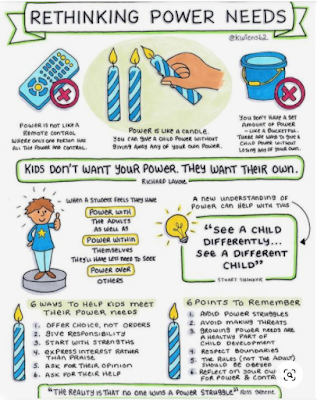 RETHINKING POWER NEEDS
@kwiens62
POWER IS NOT LIKE A
REMOTE CONTROL
WHERE ONLY ONE PERSON HAS
ALL THE POWER AND CONTROL.
POWER IS LIKE A CANDLE.
YOU CAN GIVE A CHILD POWER WITHOUT
GIVING AWAY ANY OF YOUR OWN POWER.
YOU DON'T HAVE A SET
AMOUNT OF POWER
– LIKE A BUCKETFUL.
THERE ARE WAYS TO GIVE A
CHILD POWER WITHOUT
LOSING ANY OF YOUR OWN.
KIDS DON'T WANT YOUR POWER. THEY WANT THEIR OWN.
RICHARD LAVOIE
WHEN A STUDENT FEELS THEY HAVE
POWER WITH
THE ADULTS
AS WELL AS
POWER WITHIN
THEMSELVES
THEY'LL HAVE LESS NEED TO SEEK
POWER OVER
OTHERS
A NEW UNDERSTANDING OF
POWER CAN HELP WITH THIS
"SEE A CHILD
DIFFERENTLY...
SEE A DIFFERENT
CHILD"
STUART SHANKER
6 WAYS TO HELP KIDS MEET
THEIR POWER NEEDS
1. OFFER CHOICE, NOT ORDERS
2. GIVE RESPONSIBILITY
3. START WITH STRENGTHS
4. EXPRESS INTEREST RATHER
THAN PRAISE
5. ASK FOR THEIR OPINION
6. ASK FOR THEIR HELP
6 POINTS TO REMEMBER
1. AVOID POWER STRUGGLES
2. AVOID MAKING THREATS
3. GROWING POWER NEEDS ARE
A HEALTHY PART OF
CHILD DEVELOPMENT
4. RESPECT BOUNDARIES
5. THE RULES (NOT THE ADULT)
SHOULD BE OBEYED
6. REFLECT ON YOUR OW
FOR POWER & CONTR
"THE REALITY IS THAT NO ONE WINS A POWER STRUGGLE" ROSS GREENE